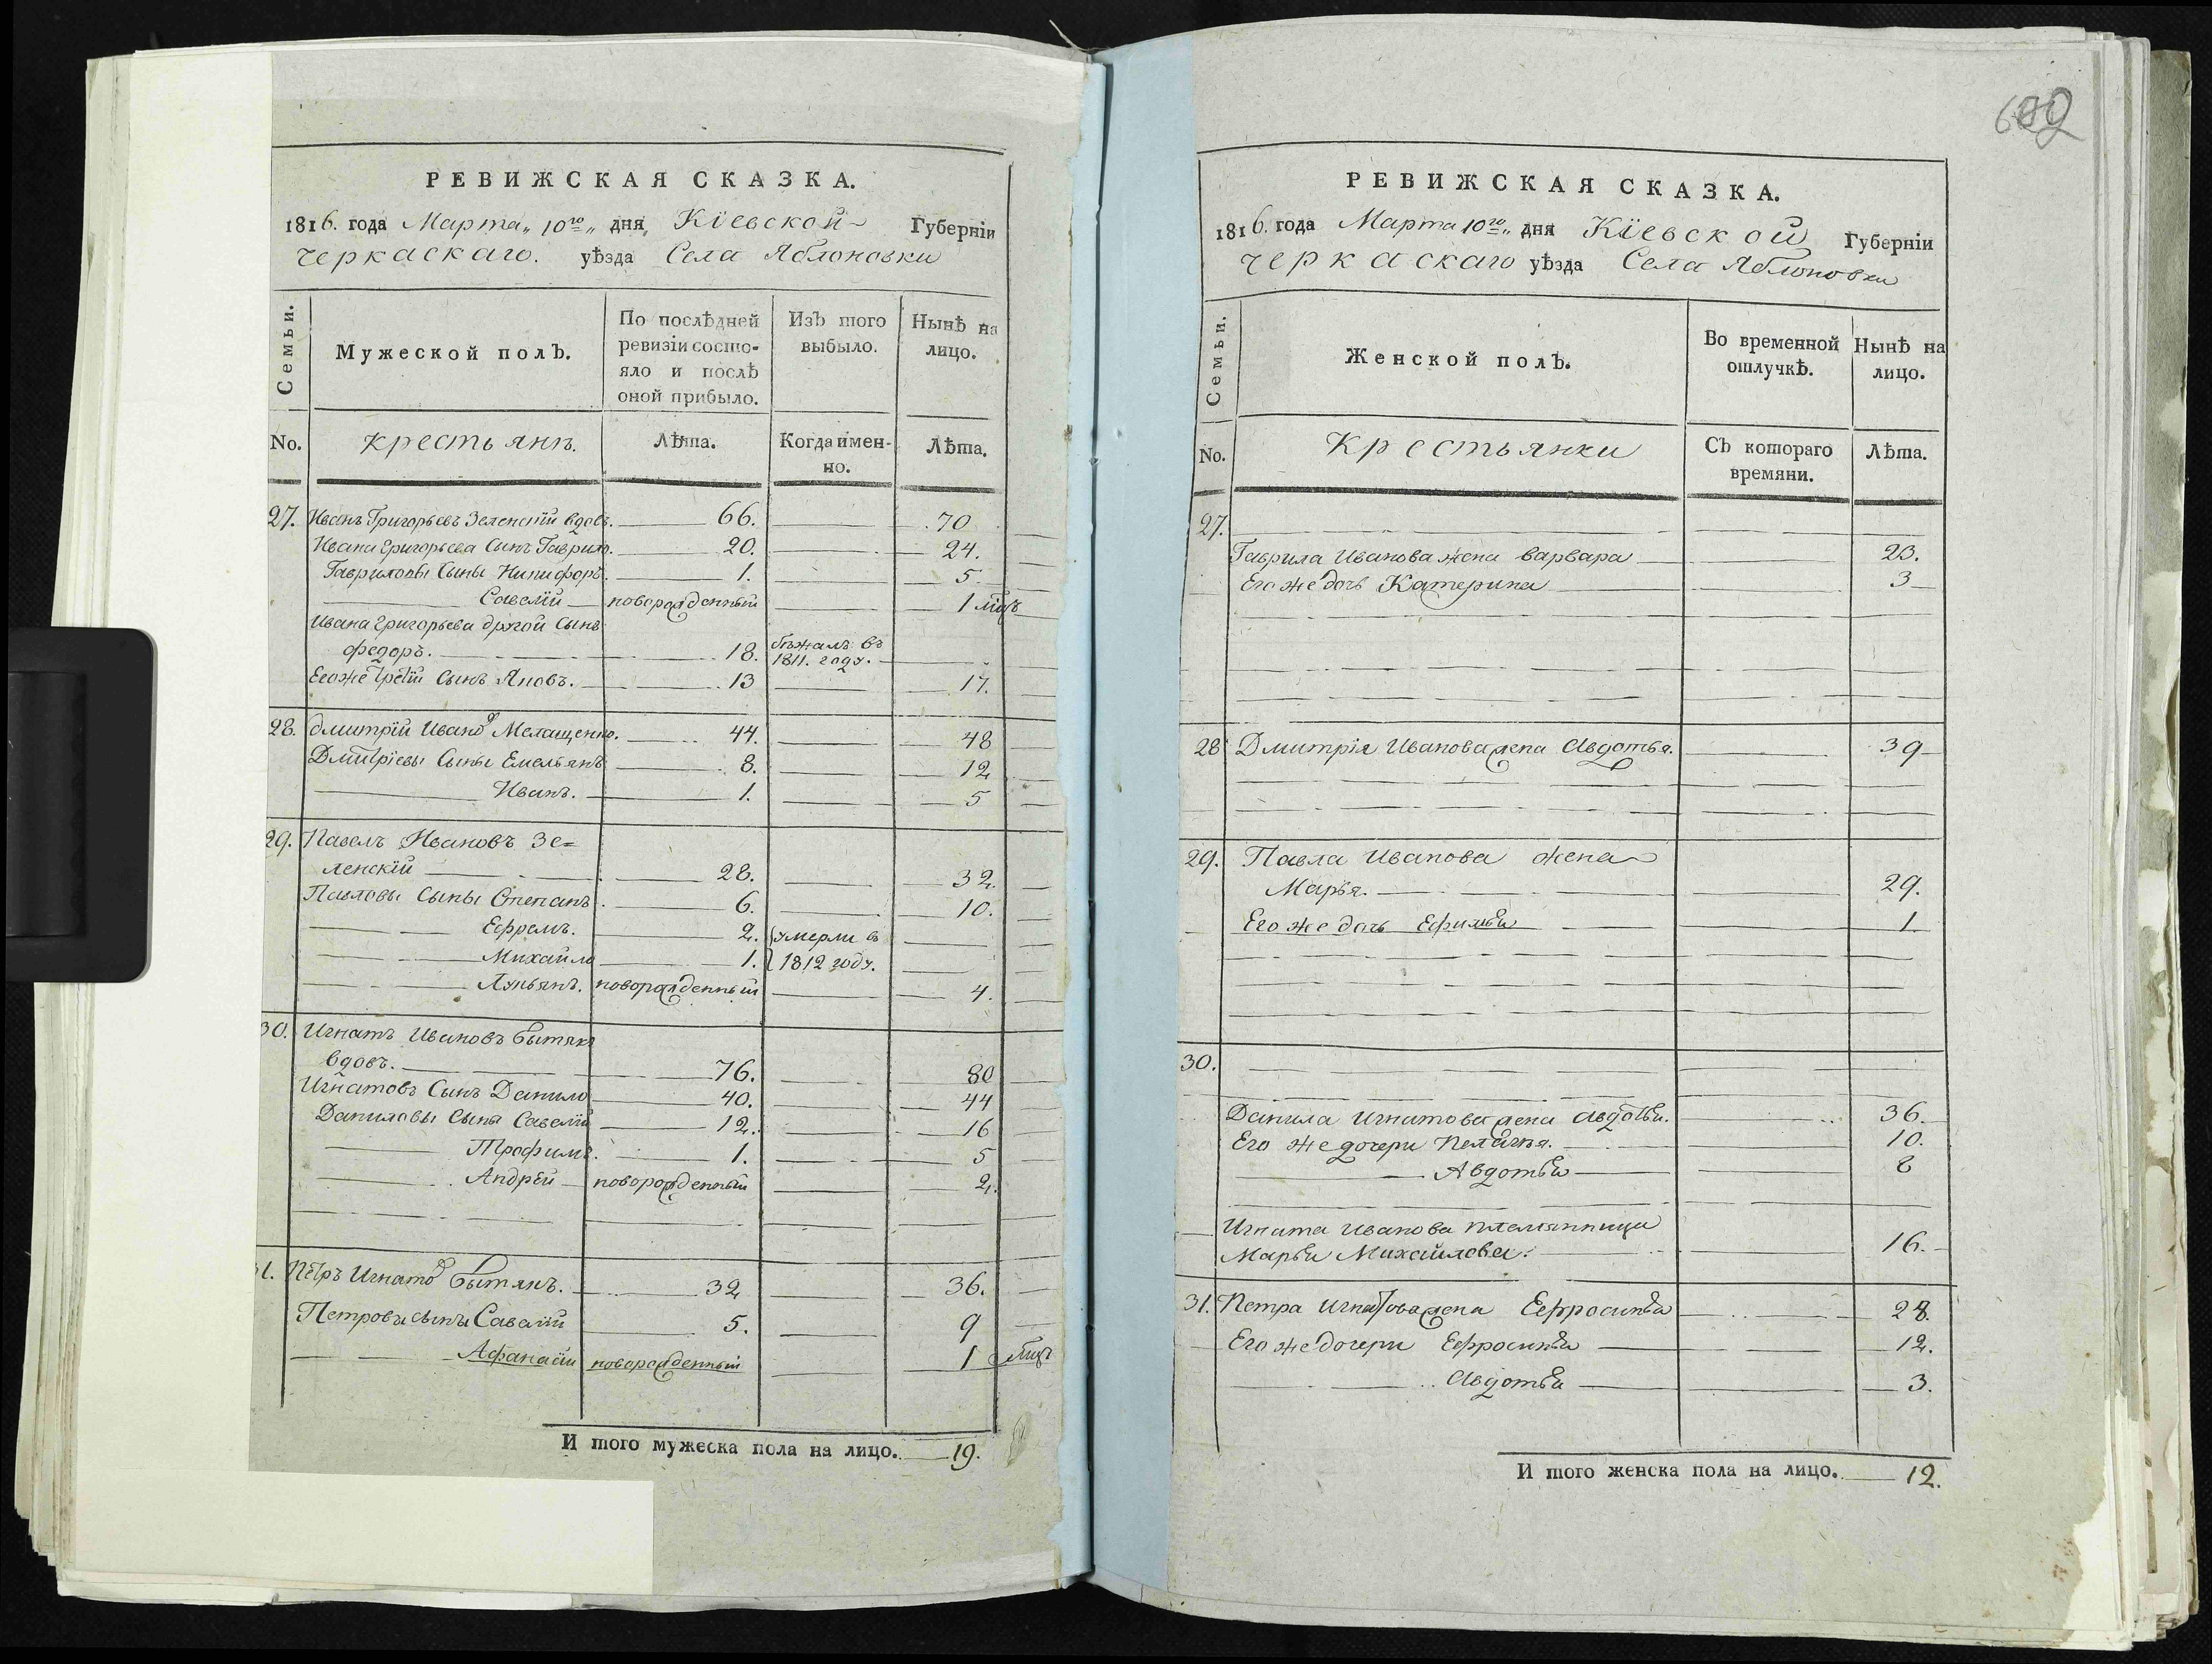 РЕВИЖСКАЯ СКАЗКА.
1816. года Марта„ 10го„ дня, Кіевской Губерніи
Черкаскаго. уѣзда Села Яблоновки
Семьи.
Мужеской полъ.
По послѣдней ревизіи состояло и послѣ оной прибыло.
Изъ того выбыло.
Нынѣ на лицо.
No. Крестьянъ. Лѣта. Когда именно. Лѣта.
27. Иванъ Григорьевъ Зеленскій вдовъ. 66. 70
Ивана Григорьева Сынъ Гаврило. 20. 24.
Гавриловы Сыны Никифоръ. 1. 5
Савелій новорожденный 1 мѣсъ
Ивана Григорьева другой Сынъ
Федоръ. 18. бѣжалъ въ 1811. году.
Егоже третій Сынъ Яковъ. 13 17.
28. Дмитрій Ивановъ Мелащенко. 44. 48
Дмитріевы Сыны Емельянъ 8. 12
Иванъ. 1. 5
29. Павелъ Ивановъ Зе=
ленскій 28. 32.
Павловы Сыны Степанъ. 6. 10.
Ефремъ. 2. умерли въ
Михайло 1. 1812 году.
Лукьянъ. новорожденный 4.
30. Игнатъ Ивановъ Бытякъ
вдовъ. 76. 80
Игнатовъ Сынъ Данило 40. 44
Даниловы Сыны Савелій 12. 16
Трофимъ. 1. 5
Андрей новорожденный 2.
31. Петръ Игнатовъ Бытякъ. 32 36.
Петровы сыны Савелій 5. 9
Афанасій новорожденный 1 мѣсъ
И того мужеска пола на лицо. 19.
РЕВИЖСКАЯ СКАЗКА.
1816. года Марта 10го„ дня Кіевской Губерніи
Черкаскаго уѣзда Села Яблоновки
Семьи.
Женской полъ.
Во временной отлучкѣ.
Нынѣ на лицо.
No. Крестьянки Съ котораго времяни. Лѣта.
27.
Гаврила Иванова жена Варвара 23.
Его же дочь Катерина 3
28 Дмитрія Иванова жена Авдотья. 39
29. Павла Иванова жена
Марья. 29.
Его же дочь Ефимья 1
30.
Данила Игнатова жена Авдотья. 36.
Его же дочери Пелагия. 10.
Авдотья 8
Игната Иванова племянница
Марья Михайлова. 16.
31. Петра Игнатова жена Ефросинья 28.
Его же дочери Ефросинья 12.
Авдотья 3.
И того женска пола на лицо. 12.